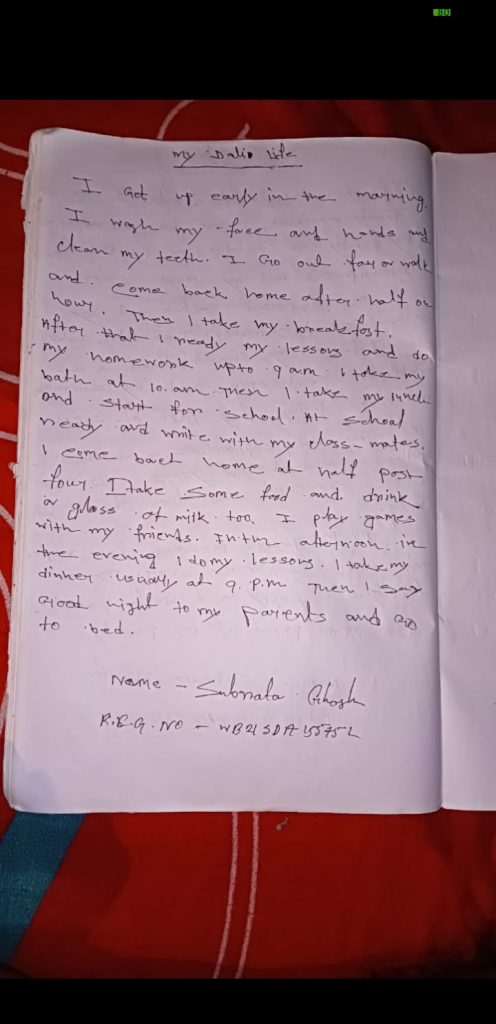 80
my Dalio Life
I Get up early in the marning.
I wash my face and hands and
clean my teeth. I Go out far or walk
and come back home after half on
houy. Then I take my breakfast.
After that I ready my lessons and do
my homework upto 9 am I take my
bath at 10. am Then I take my lunch
and start for school. At school
ready and write with my class-mates.
I come back home at half past
four. I take some food and drink
a glass of milk too. I play games
with my friends. In the afternoon. in
the evening I do my lessons. I take my
dinner usually at 9. p.m Then I say
Good night to my parents and Go
to bed.
Name - Subrata Ghosh
R.E.G. NO - WB21SDA